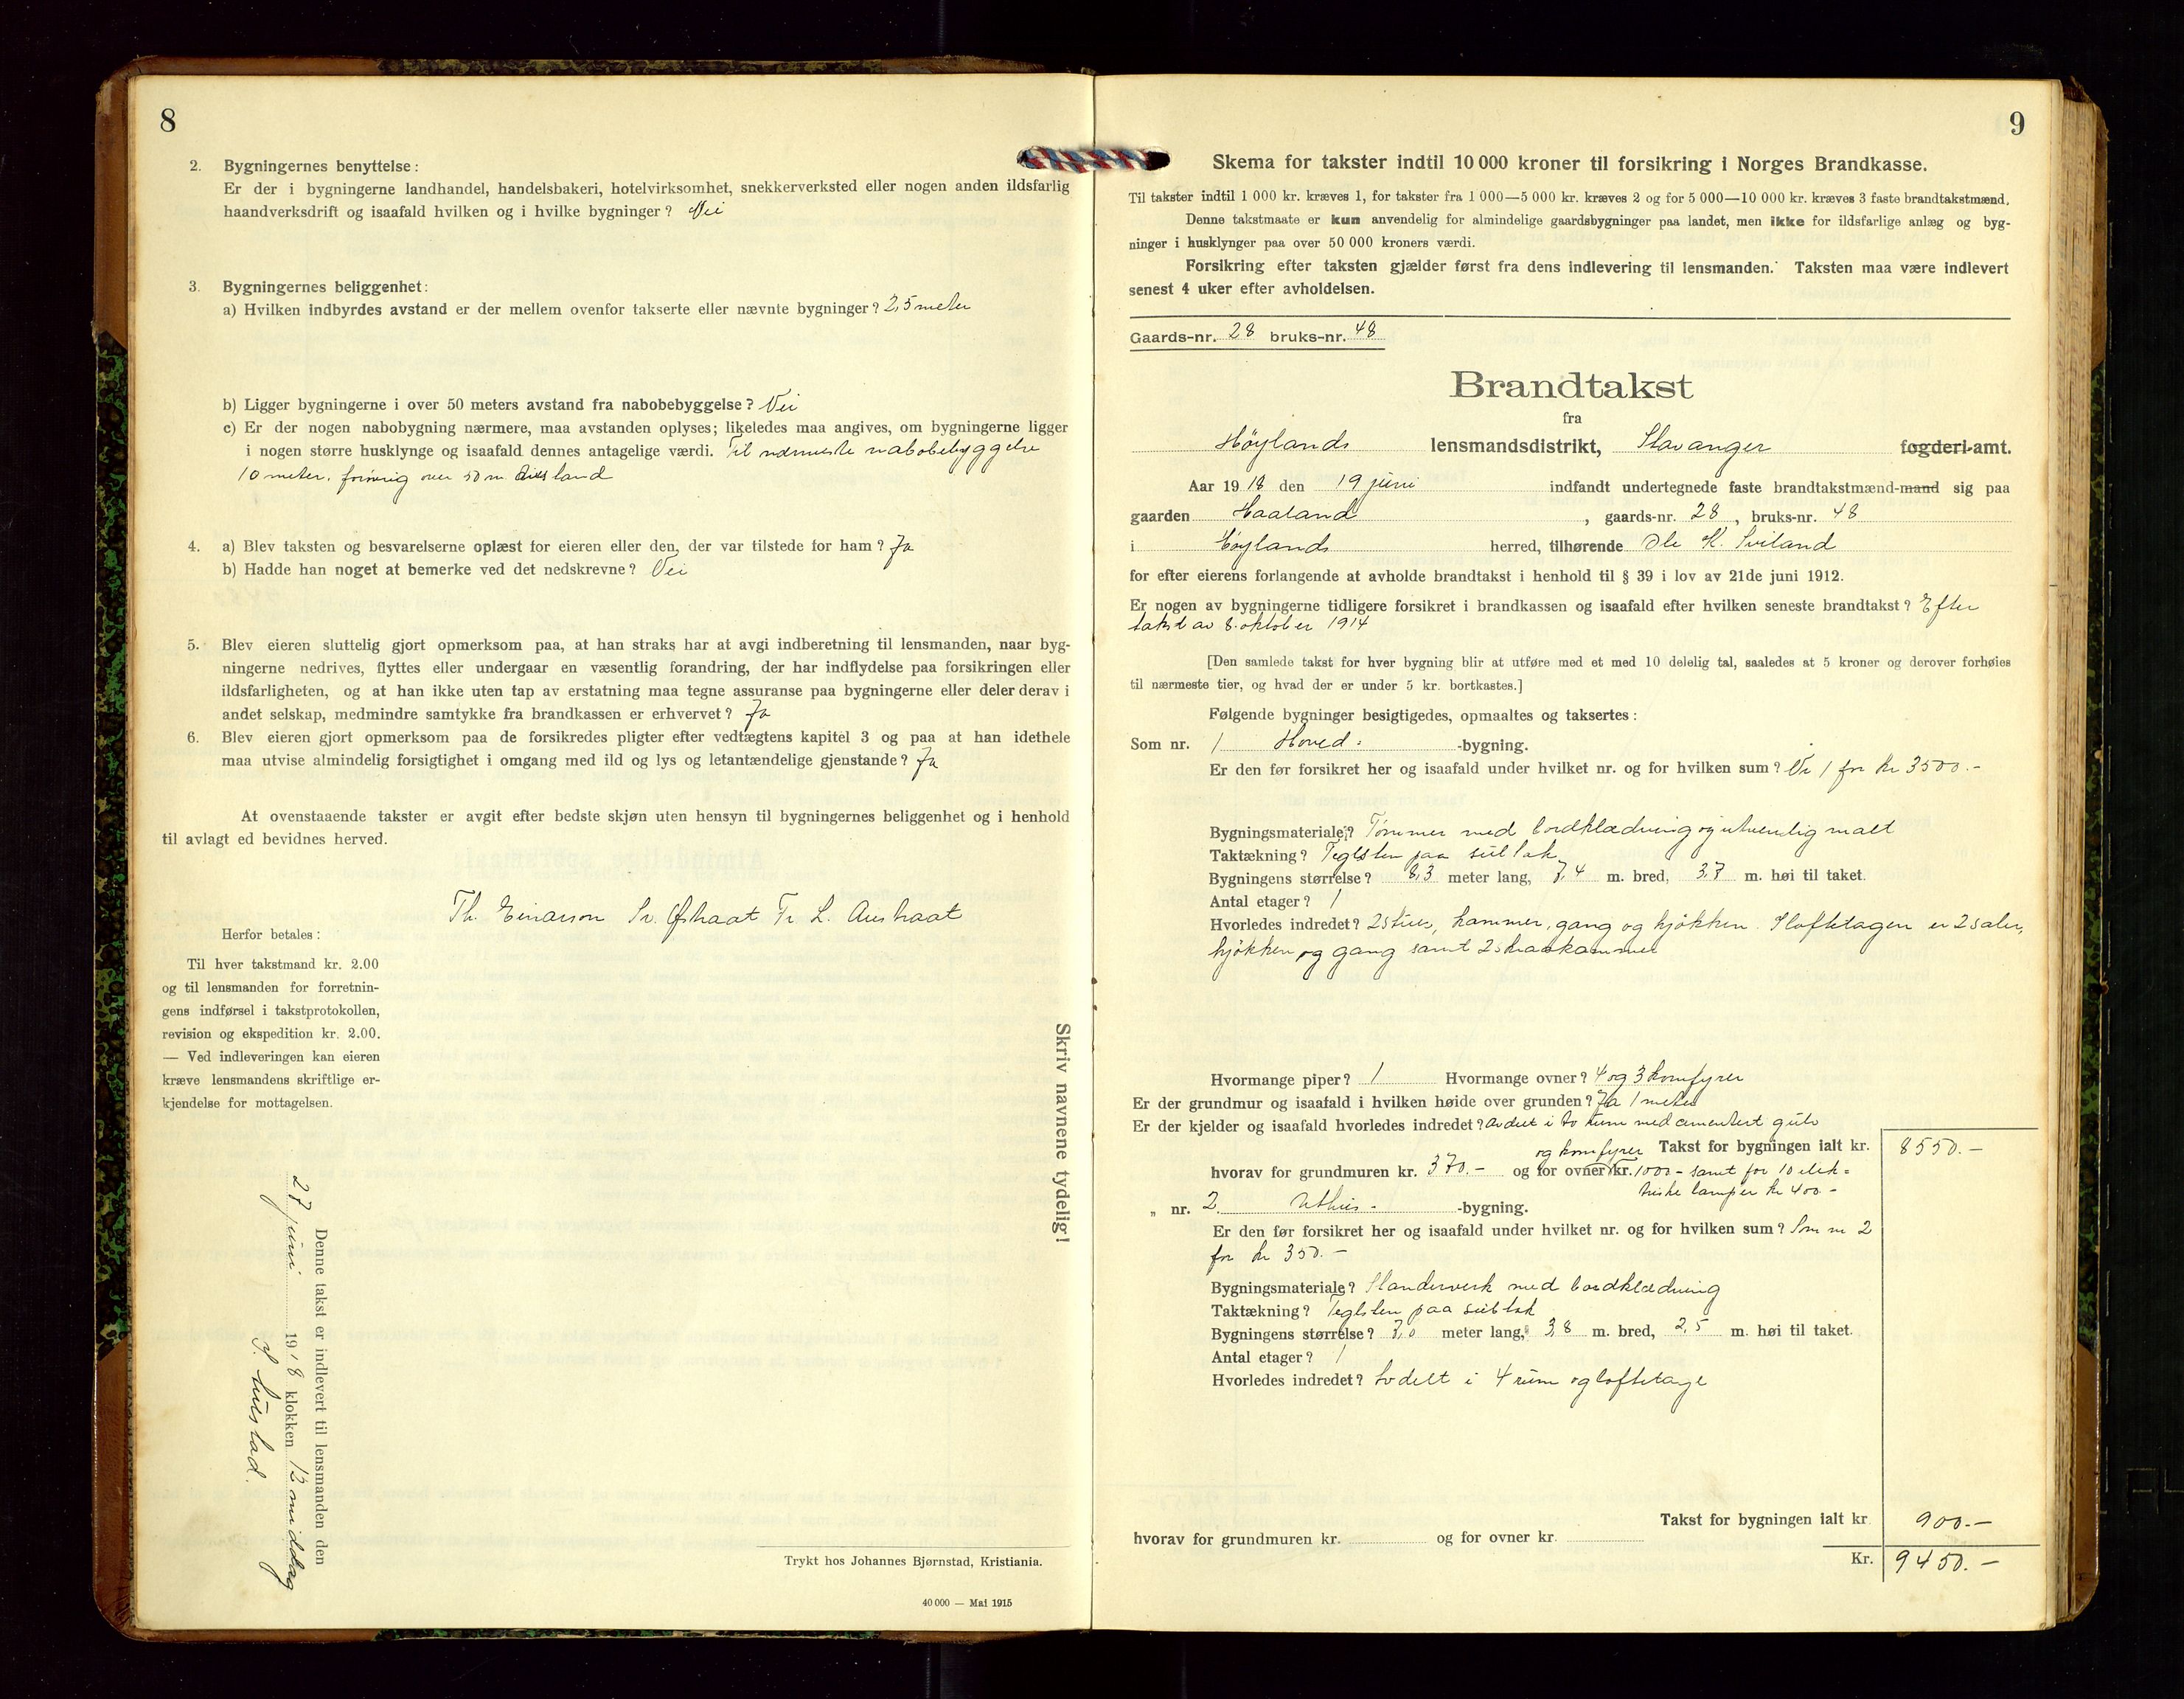 8
2. Bygningernes benyttelse:
Er der i bygningerne landhandel, handelsbakeri, hotelvirksomhet, snekkerverksted eller nogen anden ildsfarlig
haandverksdrift og isaafald hvilken og i hvilke bygninger? Nei
3. Bygningernes beliggenhet:
a) Hvilken indbyrdes avstand er der mellem ovenfor takserte eller nævnte bygninger? 2,5 meter
b) Ligger bygningerne i over 50 meters avstand fra nabobebyggelse? Nei
c) Er der nogen nabobygning nærmere, maa avstanden oplyses; likeledes maa angives, om bygningerne ligger
i nogen større husklynge og isaafald dennes antagelige værdi. Til nærmeste nabobebyggelse
10 meter, forøvrig over 50 m avstand
4. a) Blev taksten og besvarelserne oplæst for eieren eller den, der var tilstede for ham? Ja
b) Hadde han noget at bemerke ved det nedskrevne? Nei
5. Blev eieren sluttelig gjort opmerksom paa, at han straks har at avgi indberetning til lensmanden, naar byg-
ningerne nedrives, flyttes eller undergaar en væsentlig forandring, der har indflydelse paa forsikringen eller
ildsfarligheten, og at han ikke uten tap av erstatning maa tegne assuranse paa bygningerne eller deler derav i
andet selskap, medmindre samtykke fra brandkassen er erhvervet? Ja
6. Blev eieren gjort opmerksom paa de forsikredes pligter efter vedtægtens kapitel 3 og paa at han idethele
maa utvise almindelig forsigtighet i omgang med ild og lys og letantændelige gjenstande? Ja
At ovenstaaende takster er avgit efter bedste skjøn uten hensyn til bygningernes beliggenhet og i henhold
til avlagt ed bevidnes herved.
Th. Einarson Sv. Østraat Tr L. Austraat
Herfor betales:
Til hver takstmand kr. 2.00
og til lensmanden for forretnin-
gens indførsel i takstprotokollen,
revision og ekspedition kr. 2.00.
— Ved indleveringen kan eieren
kræve lensmandens skriftlige er-
kjendelse for mottagelsen.
Skriv navnene tydelig!
Denne takst er indlevert til lensmanden den
27 juni 1918 klokken 12 middag
Trykt hos Johannes Bjørnstad, Kristiania.
40 000 — Mai 1915
9
Skema for takster indtil 10 000 kroner til forsikring i Norges Brandkasse.
Til takster indtil 1 000 kr. kræves 1, for takster fra 1 000—5 000 kr. kræves 2 og for 5 000—10 000 kr. kræves 3 faste brandtakstmænd.
Denne takstmaate er kun anvendelig for almindelige gaardsbygninger paa landet, men ikke for ildsfarlige anlæg og byg-
ninger i husklynger paa over 50 000 kroners værdi.
Forsikring efter taksten gjælder først fra dens indlevering til lensmanden. Taksten maa være indlevert
senest 4 uker efter avholdelsen.
Gaards-nr. 28 bruks-nr. 48
Brandtakst
fra
Høylands lensmandsdistrikt, Stavanger fogderi-amt.
Aar 1918 den 19 juni indfandt undertegnede faste brandtakstmænd-mand sig paa
gaarden Haaland, gaards-nr. 28, bruks-nr. 48
i Høylands herred, tilhørende Ole K. Sviland
for efter eierens forlangende at avholde brandtakst i henhold til § 39 i lov av 21de juni 1912.
Er nogen av bygningerne tidligere forsikret i brandkassen og isaafald efter hvilken seneste brandtakst? Efter
takst av 8. oktober 1914
[Den samlede takst for hver bygning blir at utføre med et med 10 delelig tal, saaledes at 5 kroner og derover forhøies
til nærmeste tier, og hvad der er under 5 kr. bortkastes.]
Følgende bygninger besigtigedes, opmaaltes og taksertes:
Som nr. 1 Hoved- -bygning.
Er den før forsikret her og isaafald under hvilket nr. og for hvilken sum? Nr 1 for kr 3500.-
Bygningsmateriale? Tømmer med bordklædning og utvendig malt
Taktækning? Teglsten paa sultak
Bygningens størrelse? 8,3 meter lang, 7,4 m. bred, 3,7 m. høi til taket.
Antal etager? 1
Hvorledes indredet? 2 stuer, kammer, gang og kjøkken. I loftetagen er 2 saler,
kjøkken og gang samt 2 skraakammer
Hvormange piper? 1 Hvormange ovner? 4 og 3 komfyrer
Er der grundmur og isaafald i hvilken høide over grunden? Ja 1 meter
Er der kjelder og isaafald hvorledes indredet? Avdelt i to rum med cementert gulv
og komfyrer Takst for bygningen ialt kr. 8550.-
hvorav for grundmuren kr. 370.- og for ovner kr. 1000- samt for 10 elek-
triske lamper kr 400-
„ nr. 2 Uthus- -bygning.
Er den før forsikret her og isaafald under hvilket nr. og for hvilken sum? Som nr 2
for kr 350.-
Bygningsmateriale? Standerverk med bordklædning
Taktækning? Teglsten paa sultak
Bygningens størrelse? 7,0 meter lang, 3,8 m. bred, 2,5 m. høi til taket.
Antal etager? 1
Hvorledes indredet? Avdelt i 4 rum og loftetage
Takst for bygningen ialt kr. 900.-
hvorav for grundmuren kr. og for ovner kr.
Kr. 9450.-